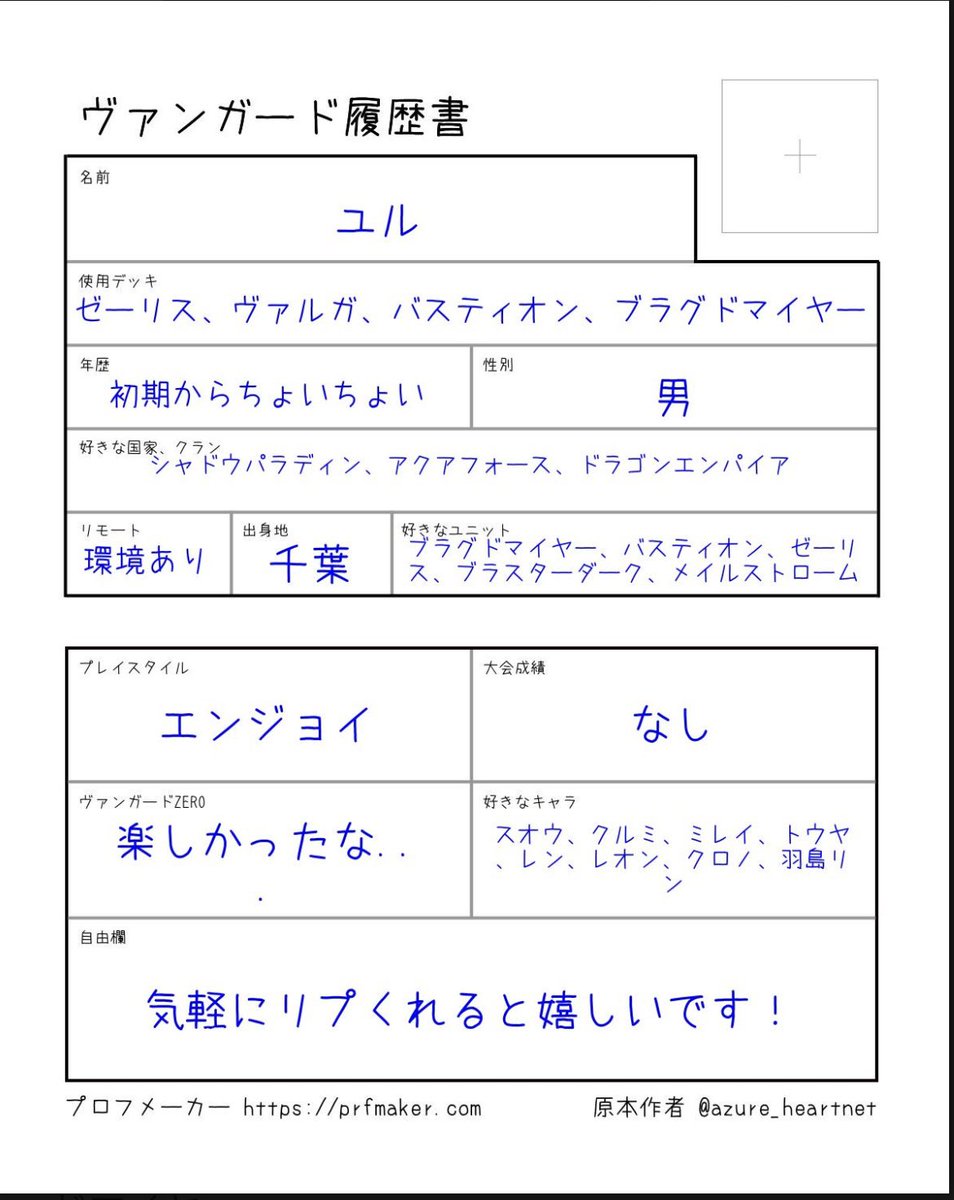 ヴァンガード履歴書
名前
ユル
使用デッキ
ゼーリス、ヴァルガ、バスティオン、ブラグドマイヤー
年歴
初期からちょいちょい
性別
男
好きな国家、クラン
シャドウパラディン、アクアフォース、ドラゴンエンパイア
リモート
環境あり
出身地
千葉
好きなユニット
ブラグドマイヤー、バスティオン、ゼーリ
ス、ブラスターダーク、メイルストローム
プレイスタイル
エンジョイ
大会成績
なし
ヴァンガードZERO
楽しかったな..
.
好きなキャラ
スオウ、クルミ、ミレイ、トウヤ
、レン、レオン、クロノ、羽島リ
ン
自由欄
気軽にリプくれると嬉しいです！
プロフメーカー https://prfmaker.com
原本作者 @azure_heartnet